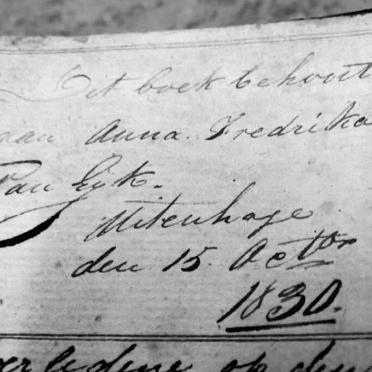 Dit boek behoort
aan Anna Fredrika
Van Eyk.
Uitenhage
den 15. Octor
1830.
op den